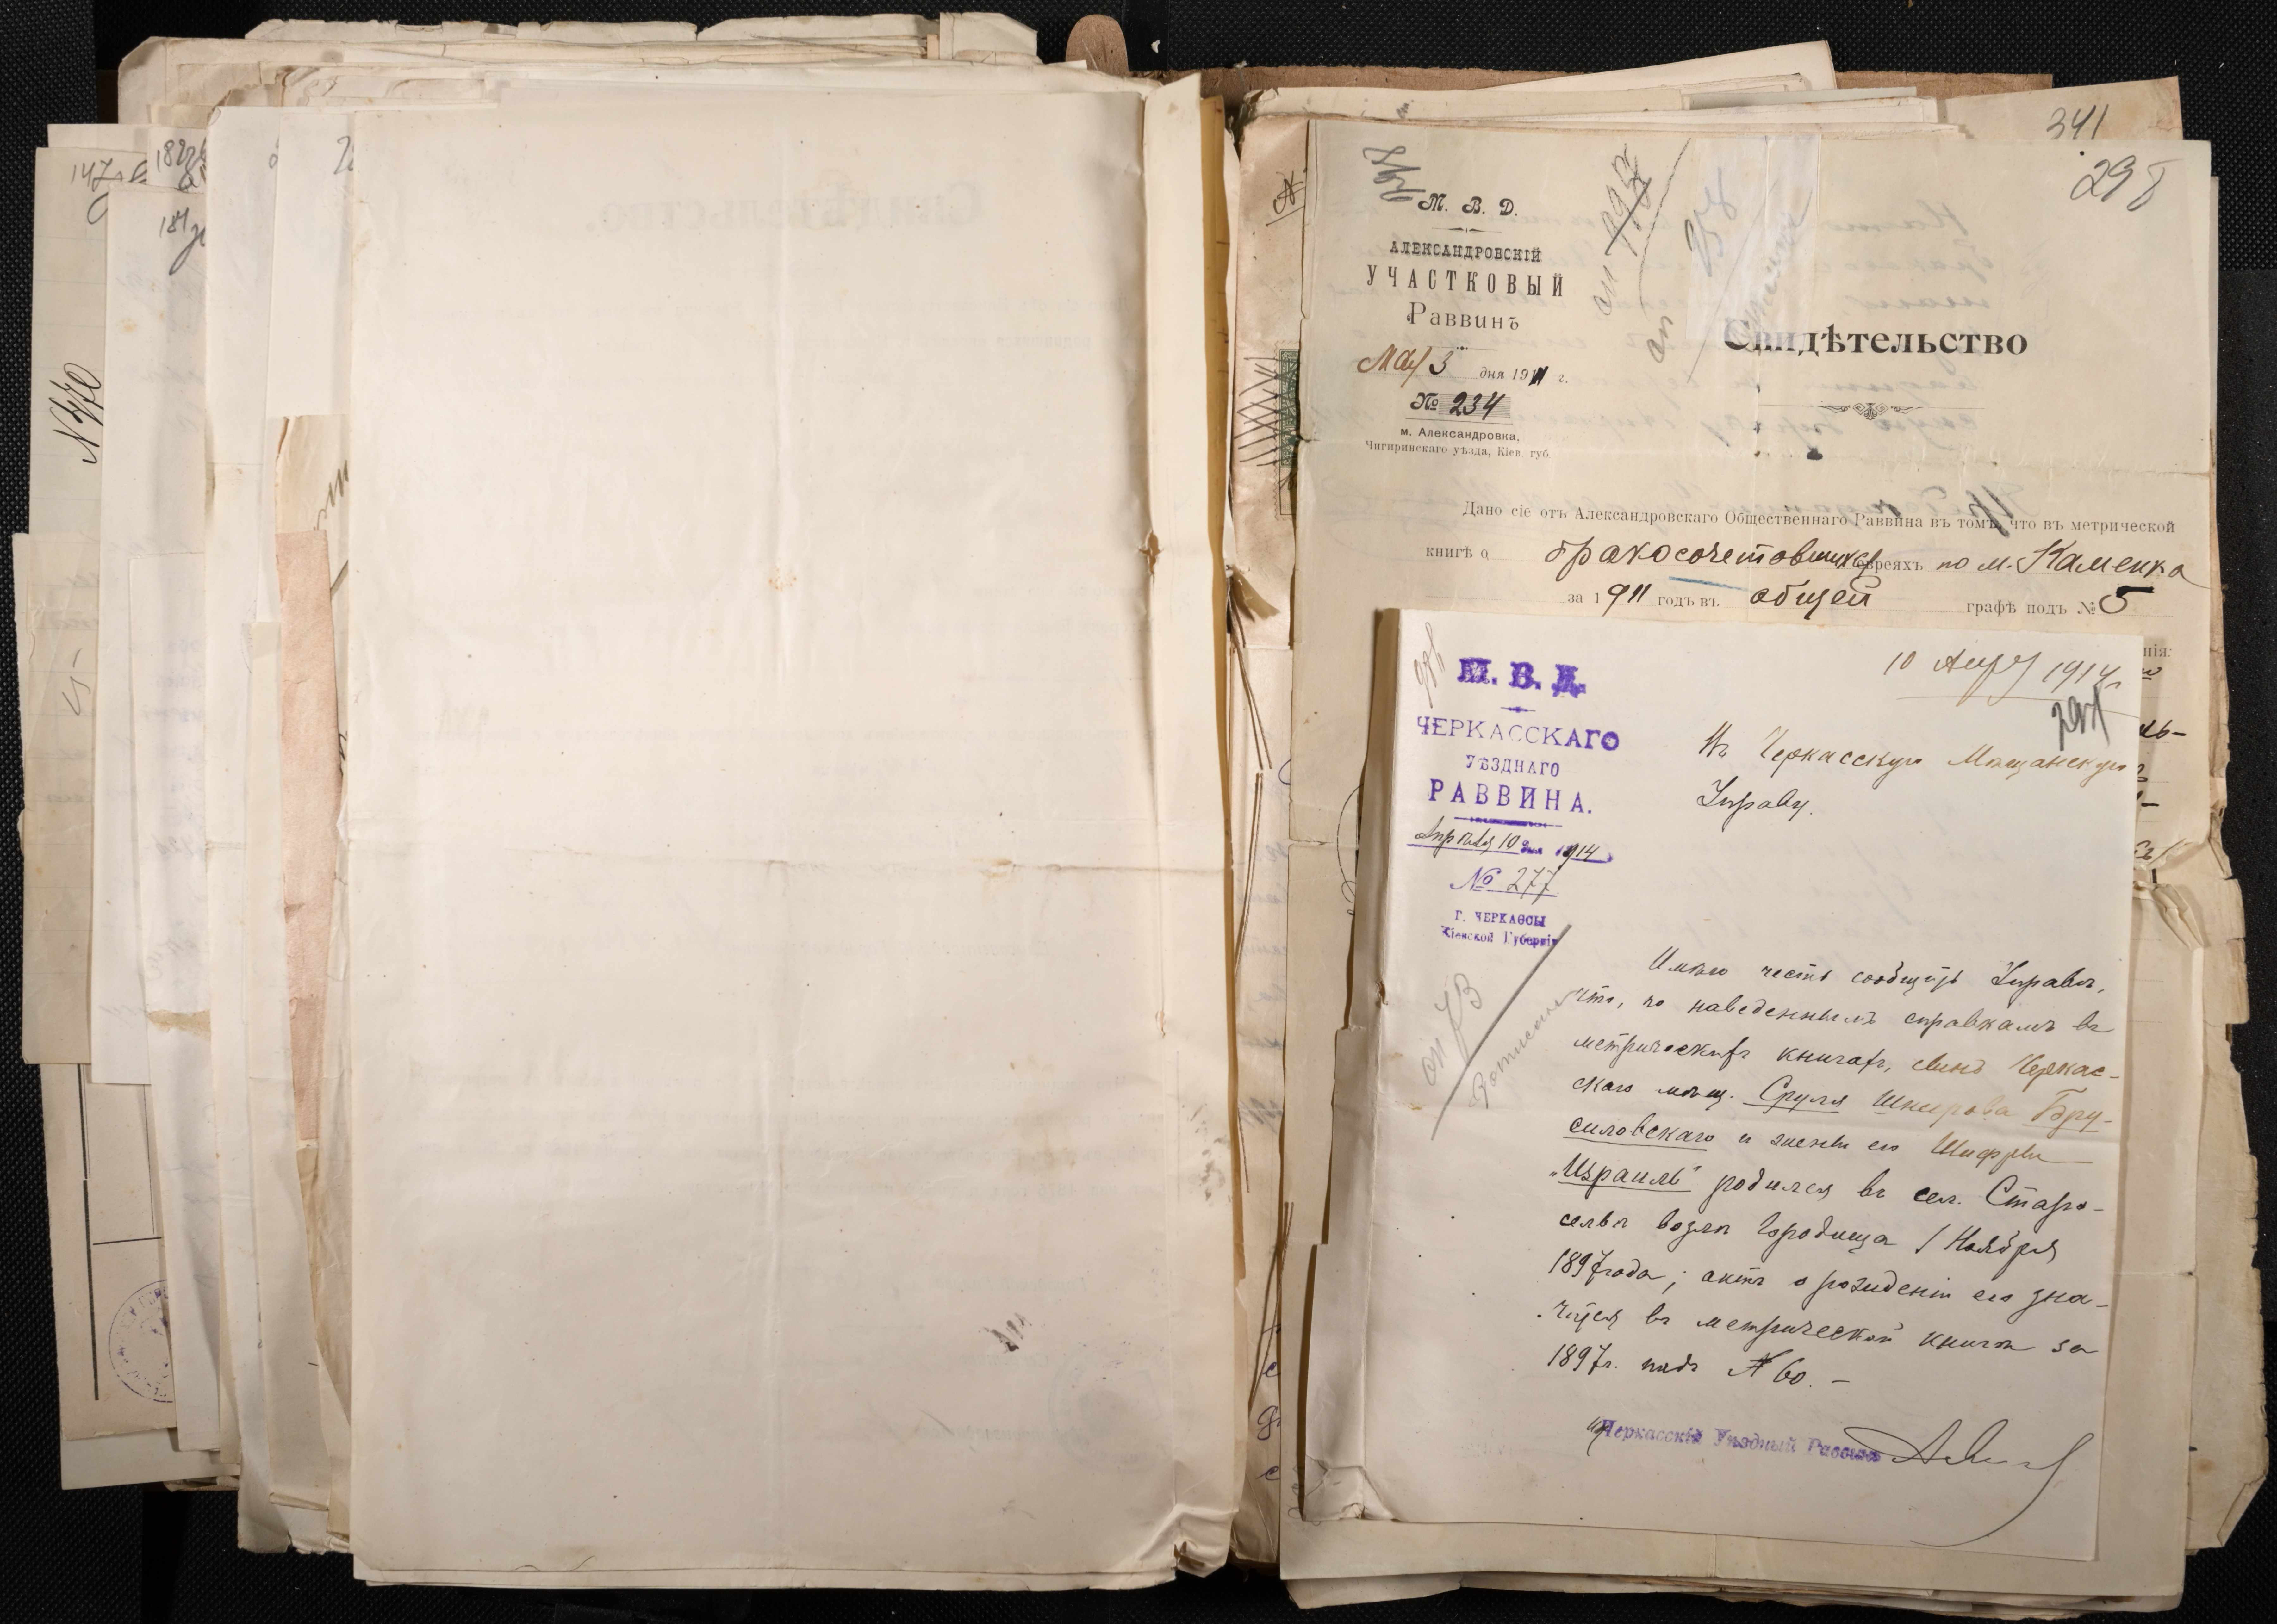 147
182
181
N 470
341
298
М. В. Д.
АЛЕКСАНДРОВСКІЙ
УЧАСТКОВЫЙ
Раввинъ
Мая 3 дня 1911 г.
№ 234
м. Александровка,
Чигиринскаго уѣзда, Кіев. губ.
Свидѣтельство
Дано сіе отъ Александровскаго Общественнаго Раввина въ томъ, что въ метрической
книгѣ о бракосочетавшихся евреяхъ по м. Каменка
за 1911 годъ въ общей графѣ подъ № 5
нія.
М. В. Д.
ЧЕРКАССКАГО
УѢЗДНАГО
РАВВИНА.
Апрѣля 10 дня 1914
№ 277
Г. ЧЕРКАССЫ
Кіевской Губерніи
10 Апр 1914 г.
297
Въ Черкасскую Мѣщанскую
Управу.
Имѣю честь сообщить Управѣ,
что, по наведеннымъ справкамъ въ
метрическихъ книгахъ, сынъ Черкас-
скаго мѣщ. Сруля Шнерова Бру-
силовскаго и жены его Шифры
"Израиль" родился въ сел. Старо-
сельѣ возлѣ Городища 1 Ноября
1897 года; актъ о рожденіи его зна-
чится въ метрической книгѣ за
1897 г. подъ № 60. –
Черкасскій Уѣздный Раввинъ